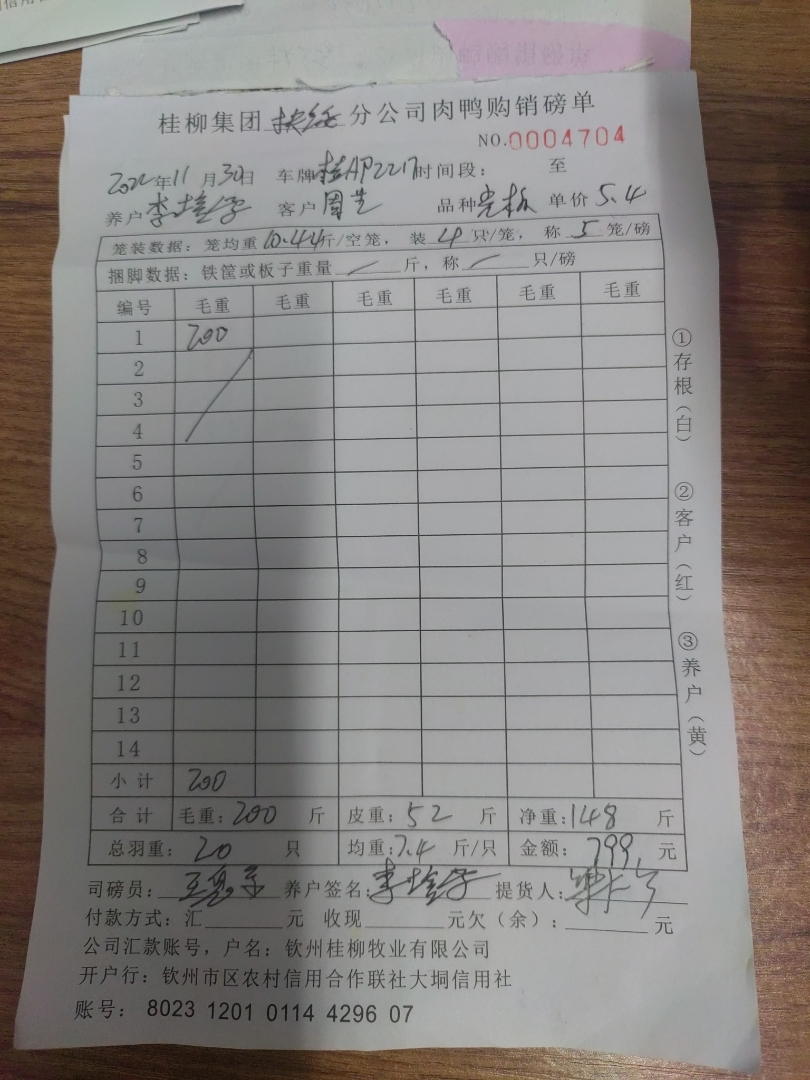 桂柳集团 分公司肉鸭购销磅单
NO.0004704
2022年11月30日 车牌桂AP2217时间段： 至
养户李 客户周 品种 单价5.4
笼装数据：笼均重10.44斤/空笼，装4只/笼，称5笼/磅
捆脚数据：铁筐或板子重量/斤，称/只/磅
编号 毛重 毛重 毛重 毛重 毛重 毛重
1 200
2
3
4
5
6
7
8
9
10
11
12
13
14
小计 200
合计 毛重：200斤 皮重：52斤 净重：148斤
总羽重：20只 均重：7.4斤/只 金额：799元
司磅员： 养户签名：李 提货人：
付款方式：汇______元 收现______元欠（余）：______元
公司汇款账号，户名：钦州桂柳牧业有限公司
开户行：钦州市区农村信用合作联社大垌信用社
账号：8023 1201 0114 4296 07
①存根（白）
②客户（红）
③养户（黄）